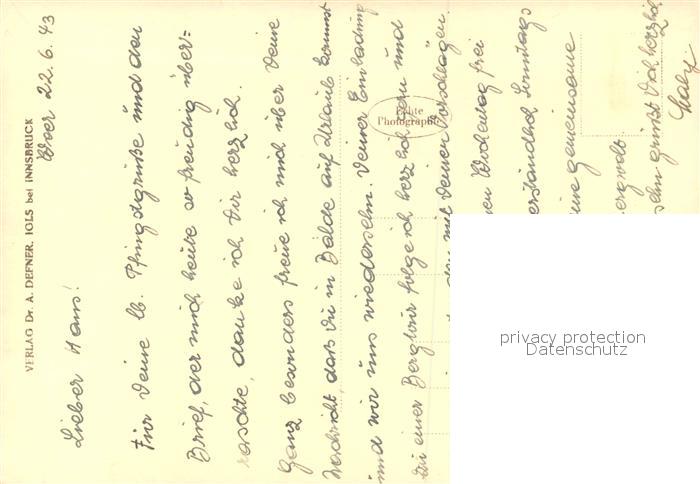 VERLAG Dr. A. DEFNER, IGLS bei INNSBRUCK
22. 6. 43
Lieber Hans!
Für Deine lb. Pfingstgrüße und den
Brief, der mich heute so freudig über=
raschte, danke ich Dir herzlich.
Ganz besonders freue ich mich über Deine
Nachricht daß Du in Bälde auf Urlaub kommst
und wir uns wiedersehn. Deiner Einladung
zu einer Bergtour folge ich herzlich gern und
mit Deinen Vorschlägen
Wochentag frei
Sonntags
gemeinsame
Bergwelt.
grüßt Dich herzlich
Echte
Photographie
privacy protection
Datenschutz